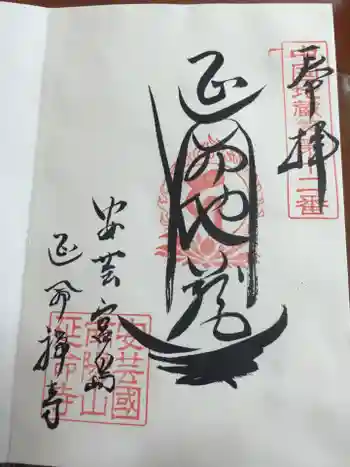 奉拝
中国地蔵
十二番
延命地蔵
安芸宮島
延命禅寺
安芸國
山
延命寺